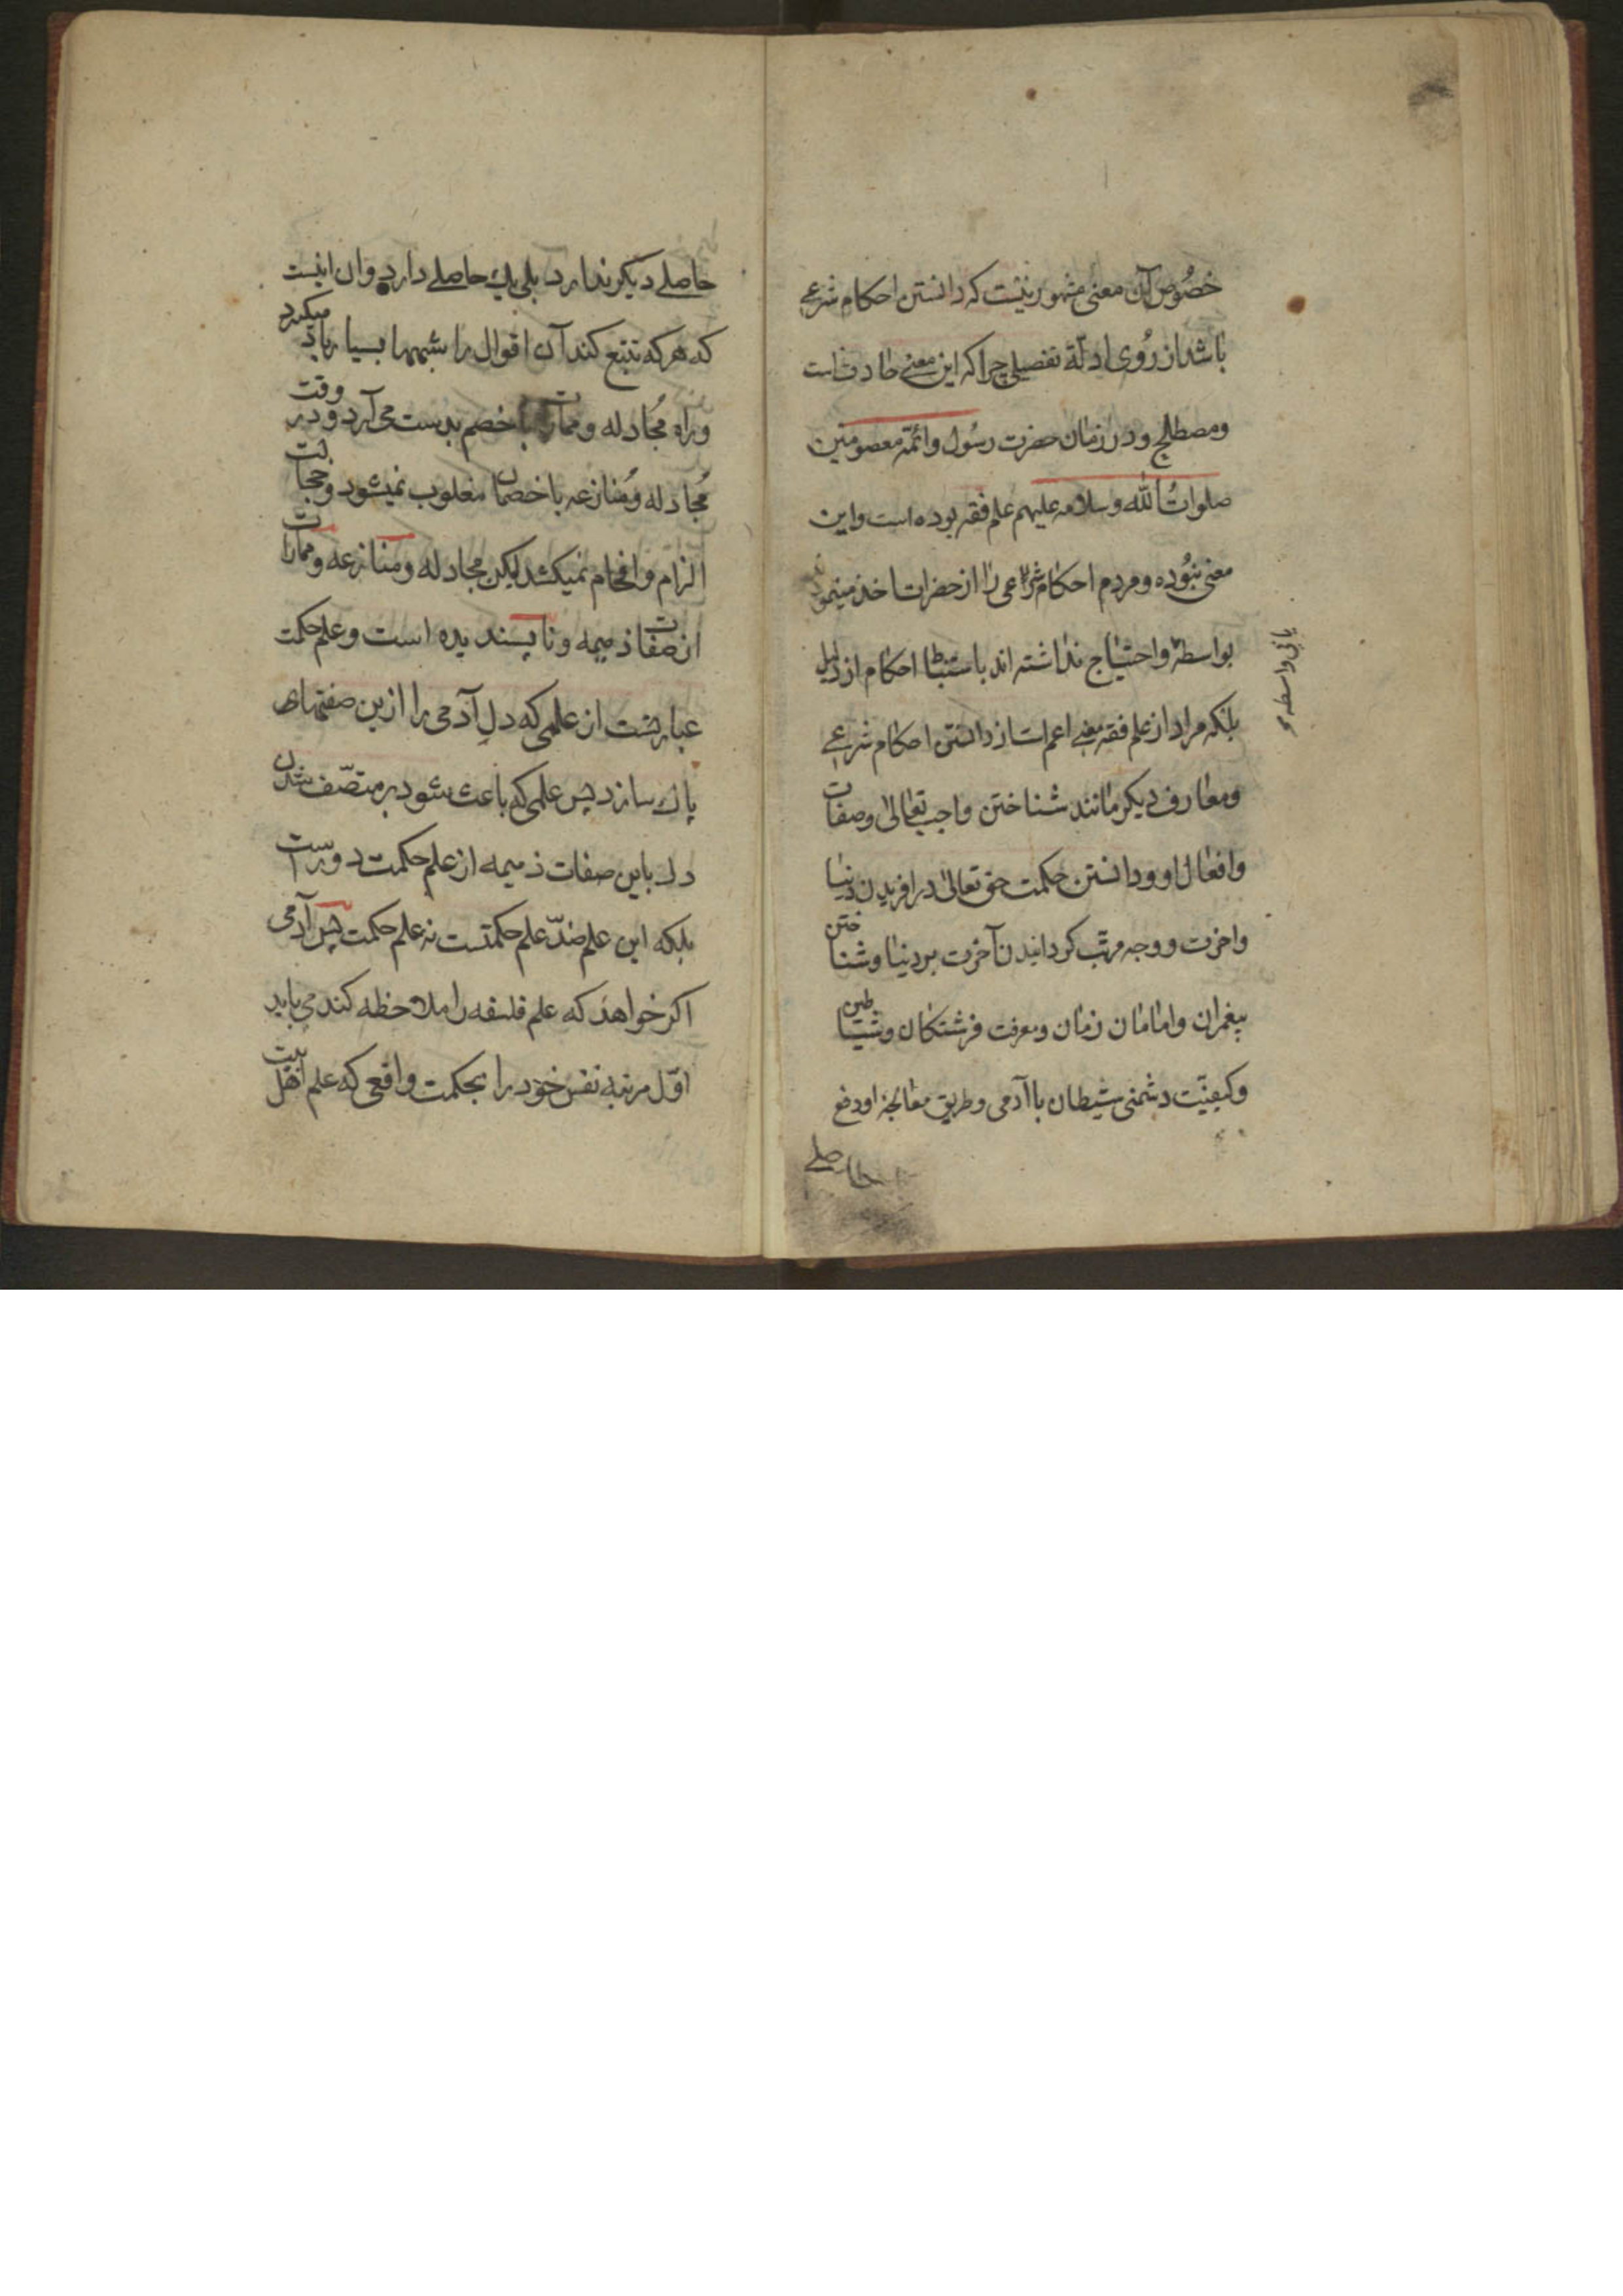 خصُوص آن معنی مشهور نیست که دانستن احکام شرعے
باشد از رُوی ادلّة تفصیلی چرا که این معنے حادث است
ومصطلح ودر زمان حضرت رسُول وائمّه معصومین
صلواتُ الله وسلامه علیهم علم فقه بوده است واین
معنی نبُوده ومردم احکام شرعی را از حضرات اخذ مینمودند
بواسطه واحتیاج نداشته اند باستنباط احکام از دلیل
بلکه مراد از علم فقه معنے اعم است از دانستن احکام شرعے
ومعارف دیکر مانند شناختن واجب تعالی وصفات
وافعال او ودانستن حکمت حق تعالی در افریدن دنیا
واخرت ووجه مرتب کردانیدن آخرت بر دنیا وشناختن
پیغمران وامامان زمان ومعرفت فرشتکان وشیاطین
وکیفیّت دشمنی شیطان با آدمی وطریق معالجهٔ او دفع
حاصلے
یا بی واسطه
حاصلے دیکر ندارد بلی یك حاصلے دارد وان اینست
که هر که تتبع کند آن اقوال را شبهها بسیار یاد میکیرد
وراه مُجادله وممارات با خصم بدست می آرد ودر وقت
مُجادله ومُنازعه با خصمان مغلوب نمیشود وخجالت
الزام وافحام نمیکشد لیکن مجادله ومنازعه وممارات
از صفات ذمیمه وناپسندیده است وعلم حکمت
عبارتست از علمی که دل آدمی را ازین صفتهای
پاك سازد پس علمی که باعث شود بر متصّف شدن
دل باین صفات ذمیمه از علم حکمت دور است
بلکه این علم ضدّ علم حکمتست نه علم حکمت پس آدمی
اکر خواهد که علم فلسفه را ملاحظه کند می باید
اوّل مرتبه نفس خود را بحکمت واقعی که علم اهل بیت